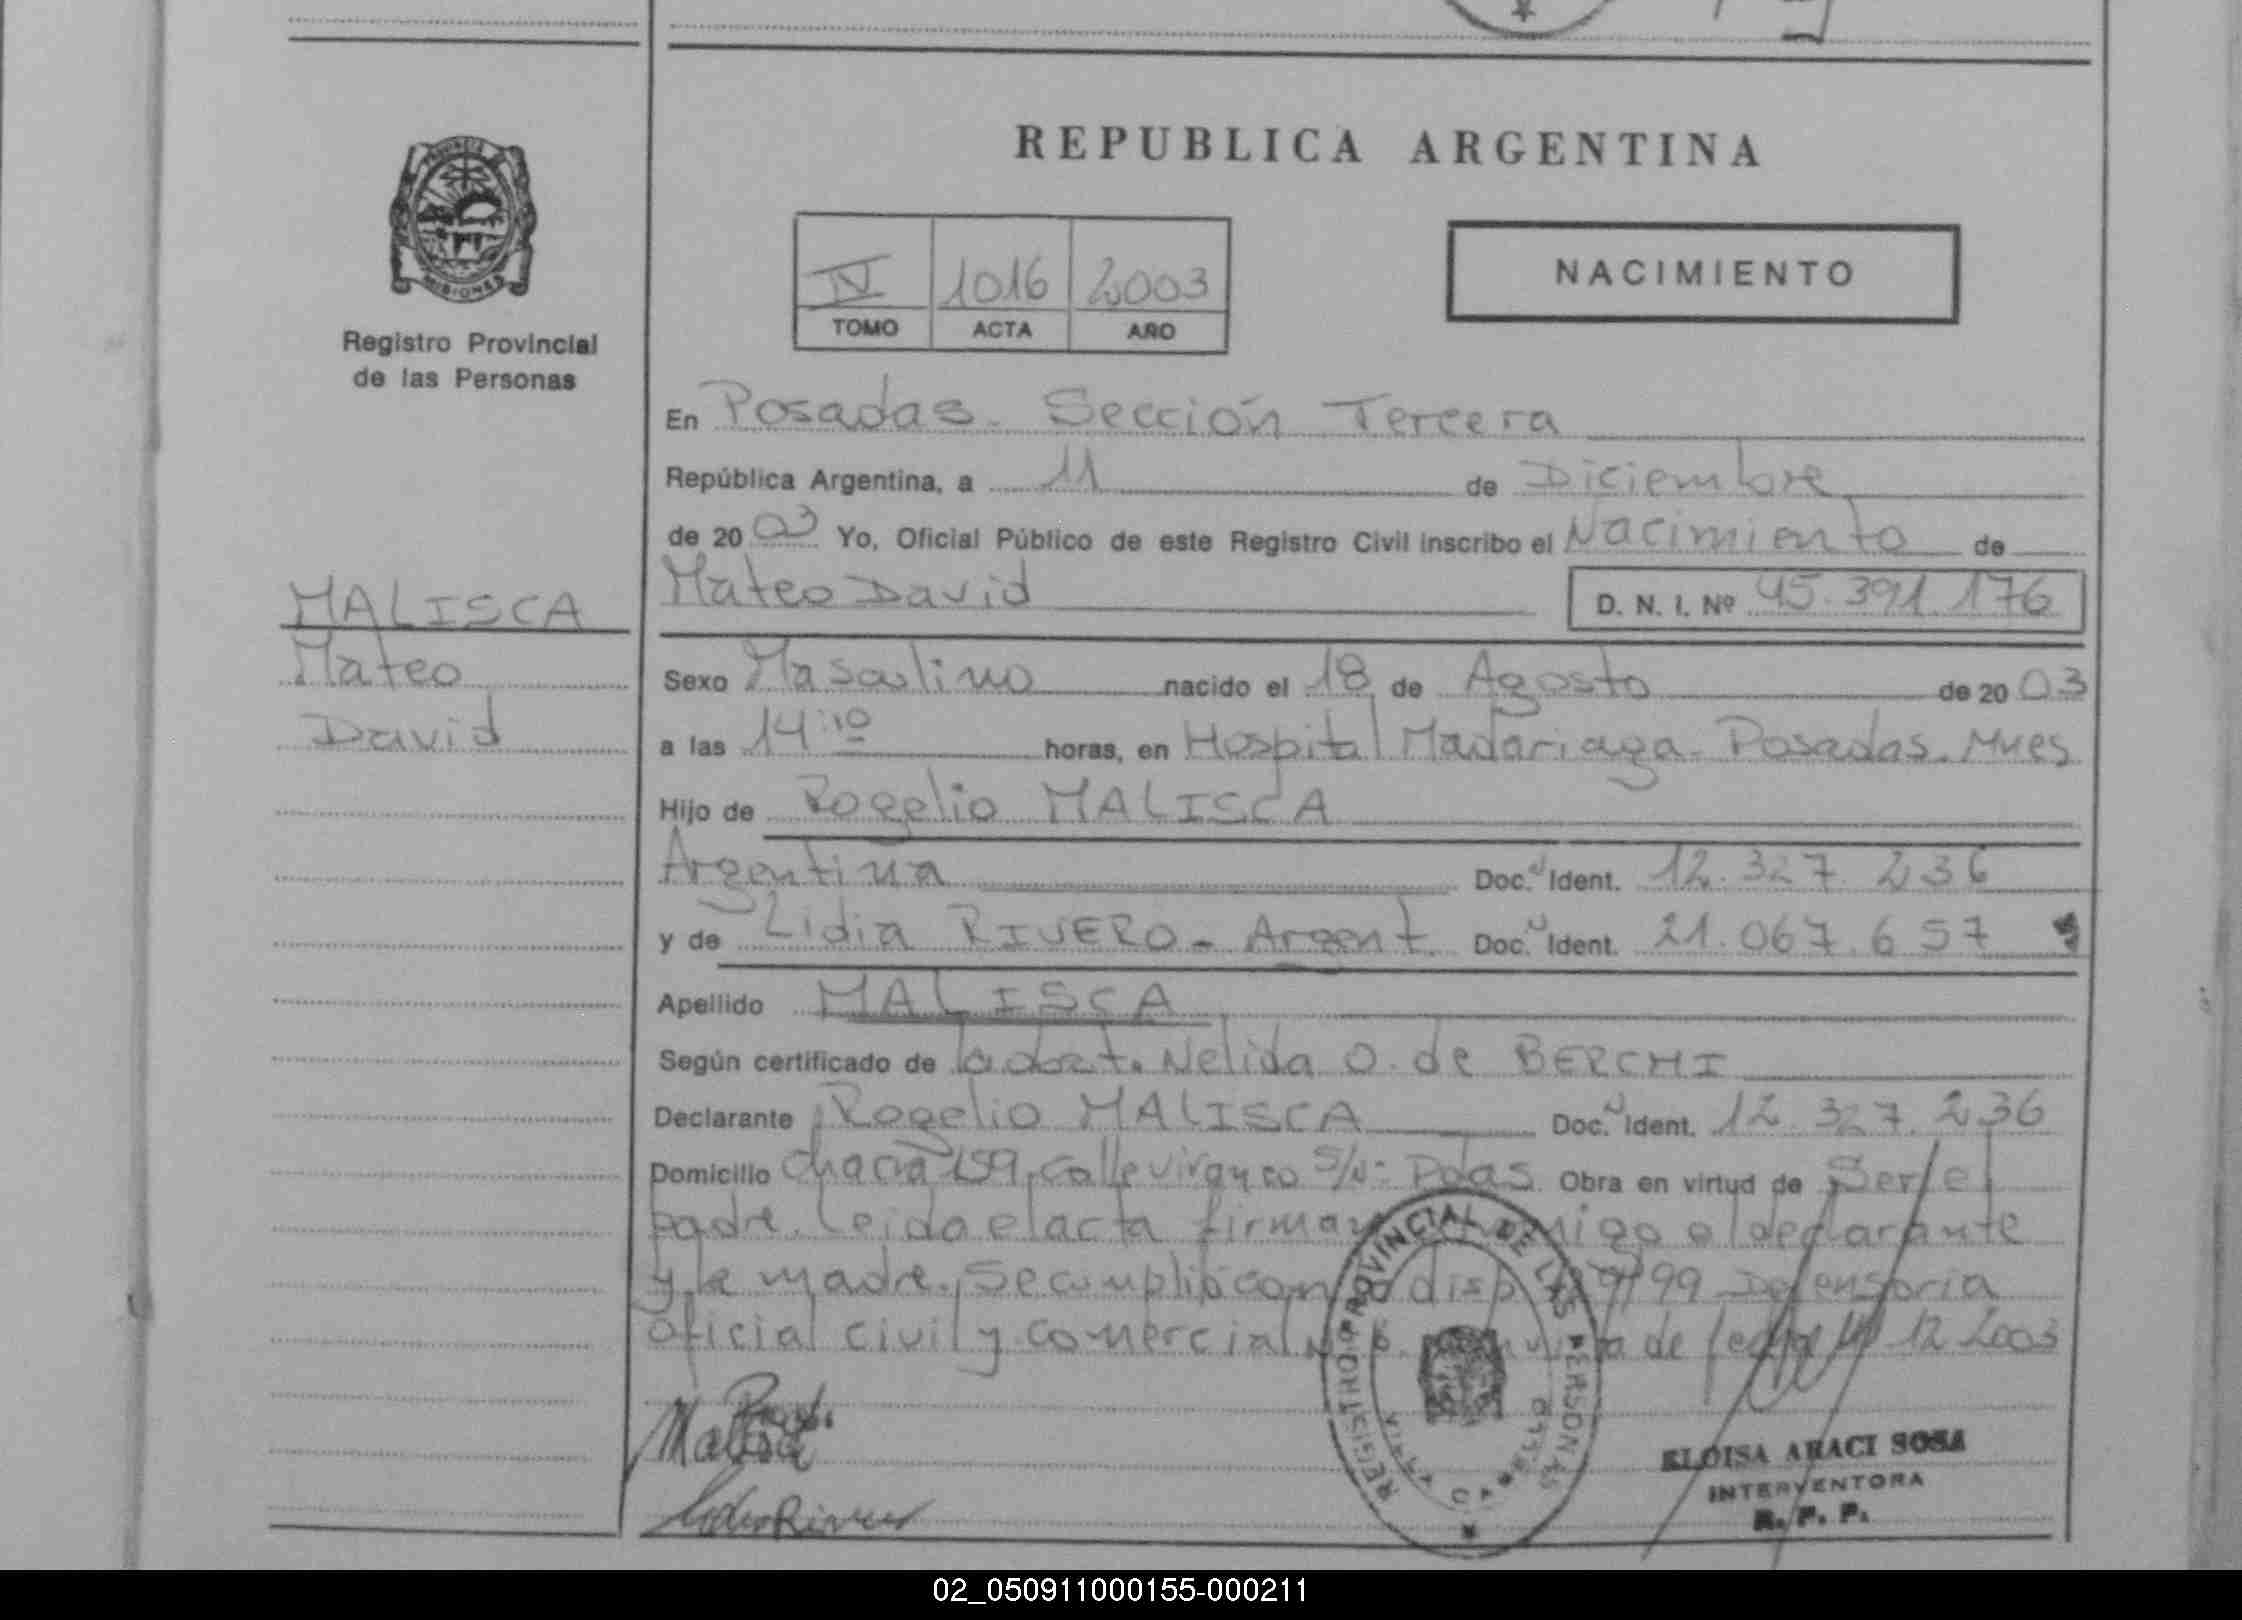 REPUBLICA ARGENTINA
PROVINCIA
MISIONES
Registro Provincial
de las Personas
IV 1016 2003
TOMO ACTA AÑO
NACIMIENTO
En Posadas. Sección Tercera
República Argentina, a 11 de Diciembre
de 20 03 Yo, Oficial Público de este Registro Civil inscribo el Nacimiento de
MALISCA
Mateo
David
Mateo David D. N. I. Nº 45.391.176
Sexo Masculino nacido el 18 de Agosto de 20 03
a las 14:10 horas, en Hospital Madariaga. Posadas. Mnes
Hijo de Rogelio MALISCA
Argentina Doc. Ident. 12.327.236
y de Lidia RIVERO - Argent. Doc. Ident. 21.067.657
Apellido MALISCA
Según certificado de la obst. Nelida O. de BERCHI
Declarante Rogelio MALISCA Doc. Ident. 12.327.236
Domicilio Chacra 159, Calle s/n- Pdas. Obra en virtud de Ser el
padre. Leida el acta firman conmigo el declarante
y la madre. Se cumplió con disp. 99 Defensoria
Oficial civil y comercial de fecha 12 2003
Malisca
Rivero
REGISTRO PROVINCIAL DE LAS PERSONAS
ELOISA ARACI SOSA
INTERVENTORA
R. P. P.
02_050911000155-000211